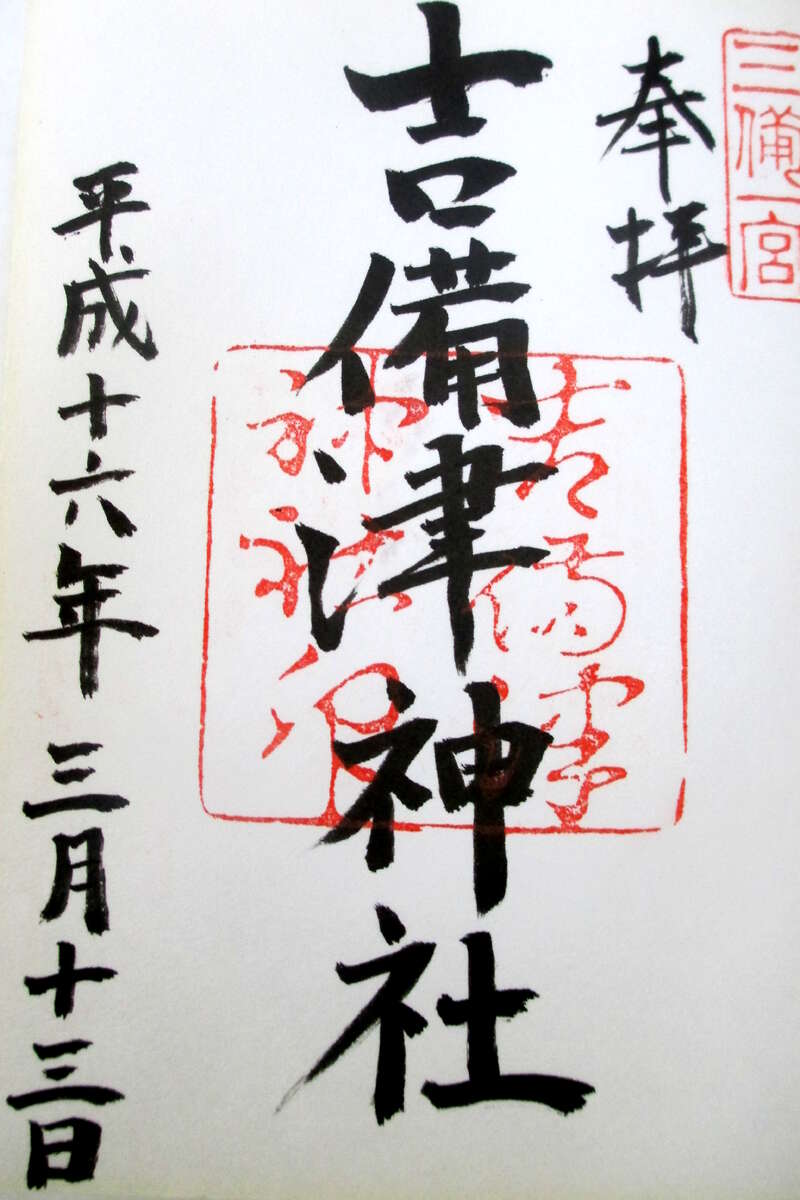 三備一宮
奉拝
吉備津神社
吉備津
神社印
平成十六年三月十三日